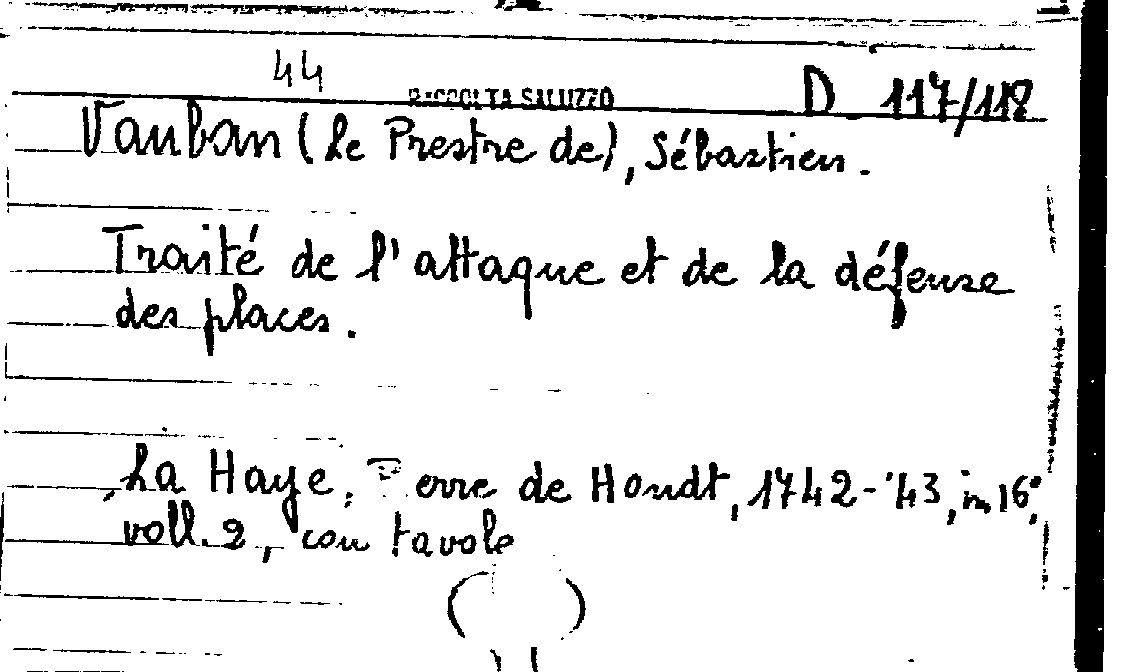 44
RACCOLTA SALUZZO
D 117/118
Vauban (Le Prestre de), Sébastien.
Traité de l'attaque et de la défense
des places.
La Haye, de Hondt, 1742-'43, in 16°,
voll. 2, con tavole